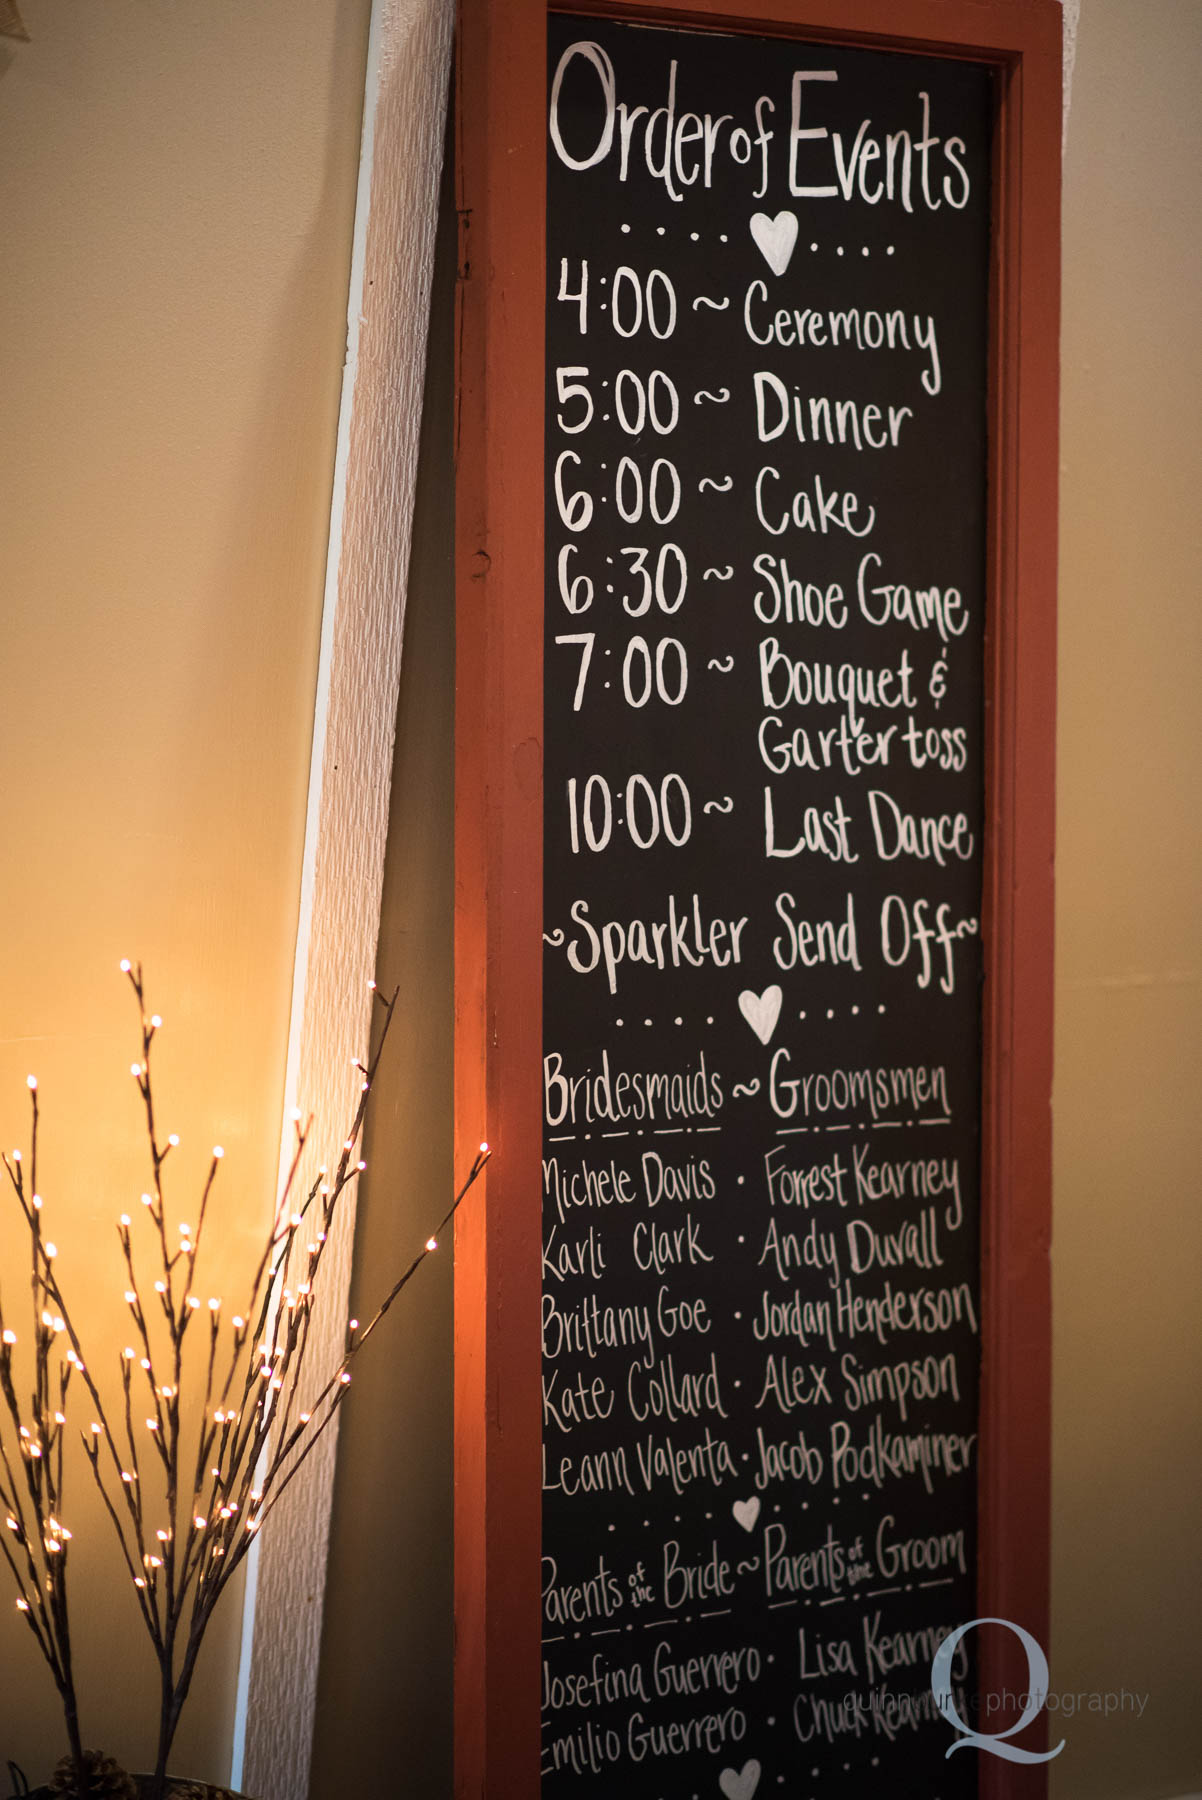 Order of Events
4:00 ~ Ceremony
5:00 ~ Dinner
6:00 ~ Cake
6:30 ~ Shoe Game
7:00 ~ Bouquet &
Garter toss
10:00 ~ Last Dance
~Sparkler Send Off~
Bridesmaids ~ Groomsmen
Michele Davis · Forrest Kearney
Karli Clark · Andy Duvall
Brittany Goe · Jordan Henderson
Kate Collard · Alex Simpson
Leann Valenta · Jacob Podkaminer
Parents of the Bride ~ Parents of the Groom
Josefina Guerrero · Lisa Kearney
Emilio Guerrero · Chuck Kearney
Q
photography